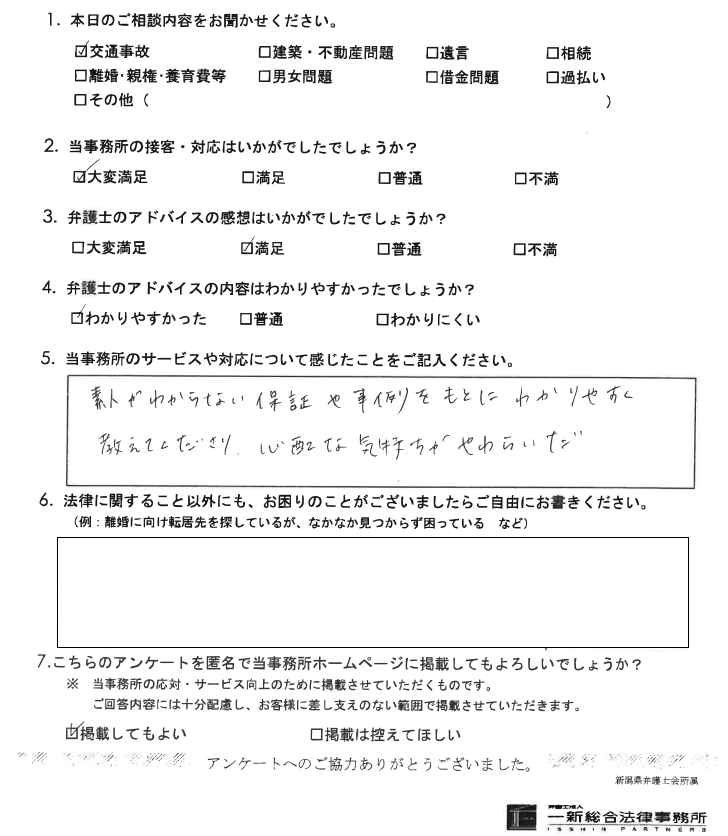 1. 本日のご相談内容をお聞かせください。
☑交通事故 □建築・不動産問題 □遺言 □相続
□離婚・親権・養育費等 □男女問題 □借金問題 □過払い
□その他（ ）
2. 当事務所の接客・対応はいかがでしたでしょうか？
☑大変満足 □満足 □普通 □不満
3. 弁護士のアドバイスの感想はいかがでしたでしょうか？
□大変満足 ☑満足 □普通 □不満
4. 弁護士のアドバイスの内容はわかりやすかったでしょうか？
☑わかりやすかった □普通 □わかりにくい
5. 当事務所のサービスや対応について感じたことをご記入ください。
素人がわからない保証や事例をもとにわかりやすく
教えてくださり、心配な気持ちがやわらいだ
6. 法律に関すること以外にも、お困りのことがございましたらご自由にお書きください。
（例：離婚に向け転居先を探しているが、なかなか見つからず困っている　など）
7.こちらのアンケートを匿名で当事務所ホームページに掲載してもよろしいでしょうか？
※　当事務所の応対・サービス向上のために掲載させていただくものです。
ご回答内容には十分配慮し、お客様に差し支えのない範囲で掲載させていただきます。
☑掲載してもよい □掲載は控えてほしい
アンケートへのご協力ありがとうございました。
新潟県弁護士会所属
弁護士法人
一新総合法律事務所
ISSHIN PARTNERS